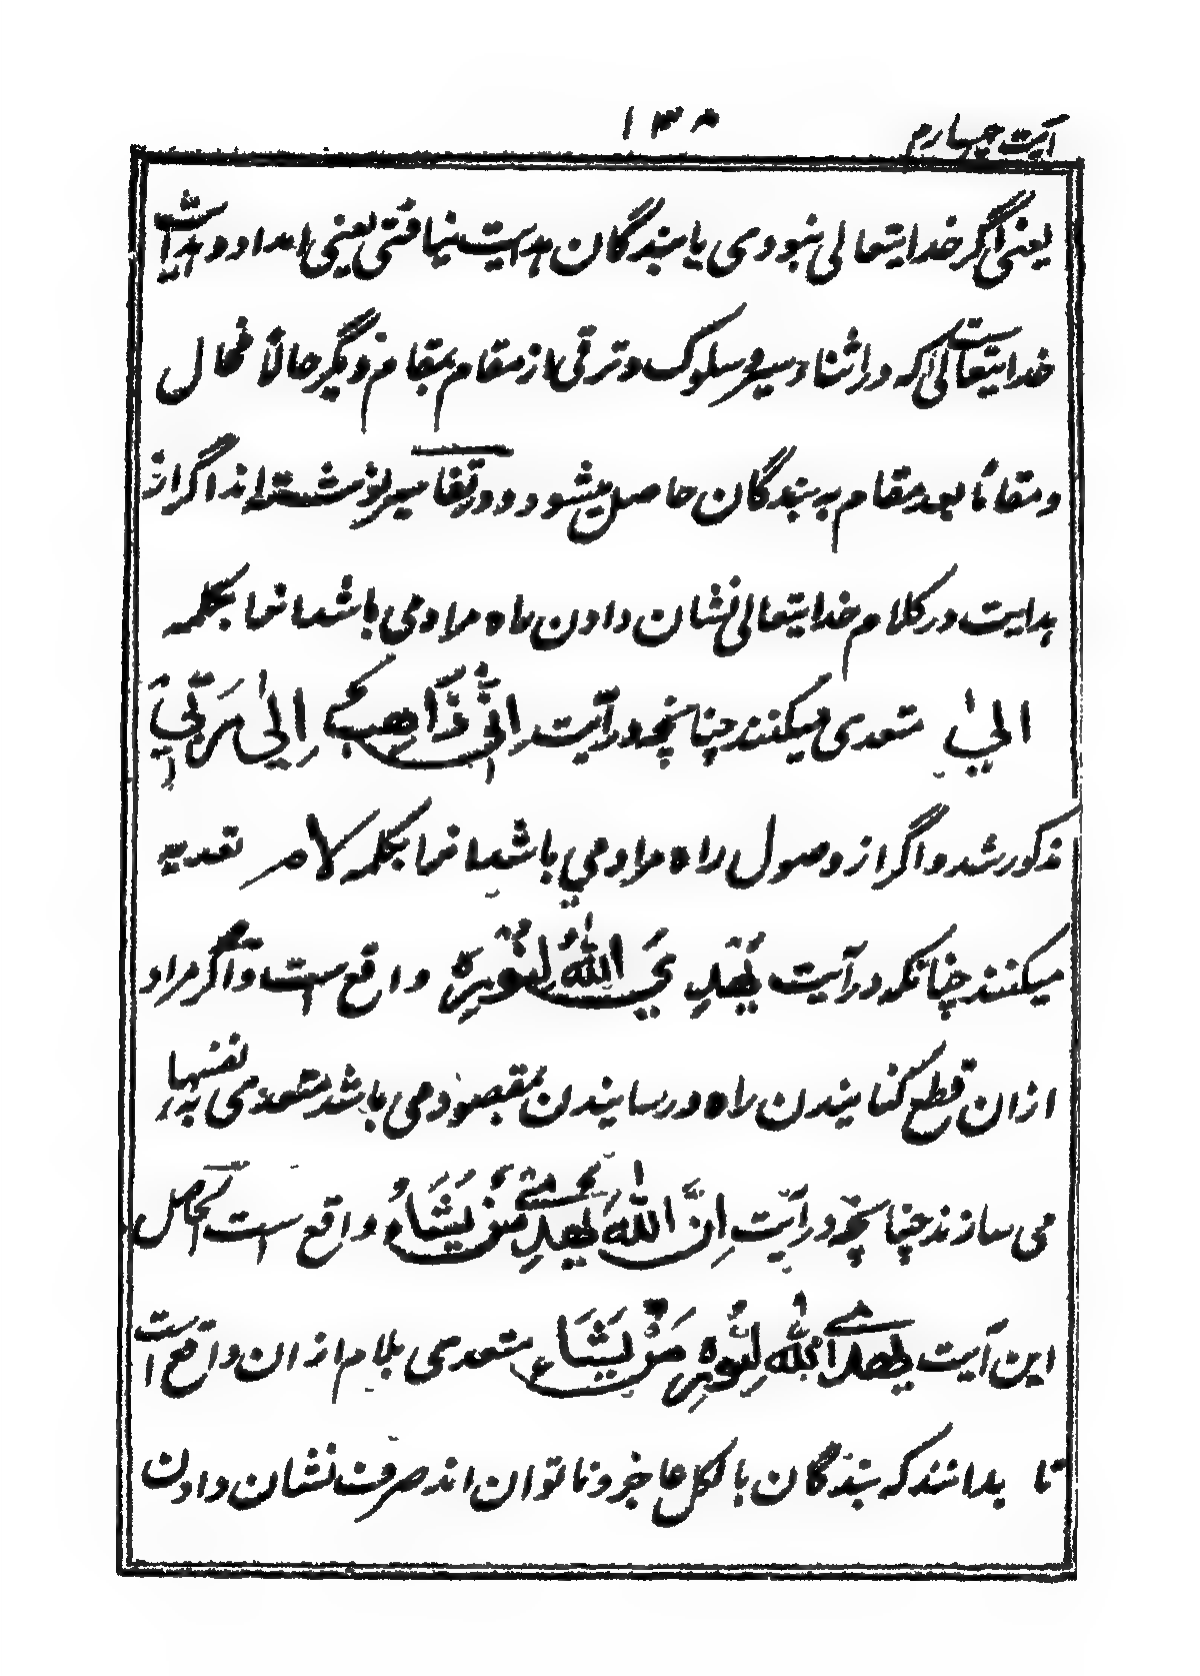 آیت چهارم
یعنی اگر خدایتعالی نبودی یا بندگان هدایت نیافتی یعنی امداد و هدایت
خدایتعالیست که در اثناء سیر و سلوک و ترقی از مقام بمقام دیگر حالاً فحال
و مقاماً بعد مقام به بندگان حاصل میشود و در تفاسیر نوشته اند اگر از
هدایت در کلام خدایتعالی نشان دادن راه مراد می باشد انما بکلمه
الی متعدی میکنند چنانچه در آیت اِنِّی ذَاهِبٌ اِلیٰ رَبِّیْ
مذکور شد و اگر از وصول راه مراد می باشد انما بکلمه لام تعدیه
میکنند چنانکه در آیت یَهْدِی اللّٰهُ لِنُوْرِهٖ واقع ست و اگر مراد
ازان قطع کنانیدن راه و رسانیدن بمقصود می باشد متعدی به نفسها
می سازند چنانچه در آیت اِنَّ اللّٰهَ یَهْدِیْ مَنْ یَّشَاءُ واقع ست الحاصل
این آیت یَهْدِی اللّٰهُ لِنُوْرِهٖ مَنْ یَّشَاءُ متعدی بلام ازان واقع است
تا بدانند که بندگان بالکل عاجز و ناتوان اند صرف نشان دادن